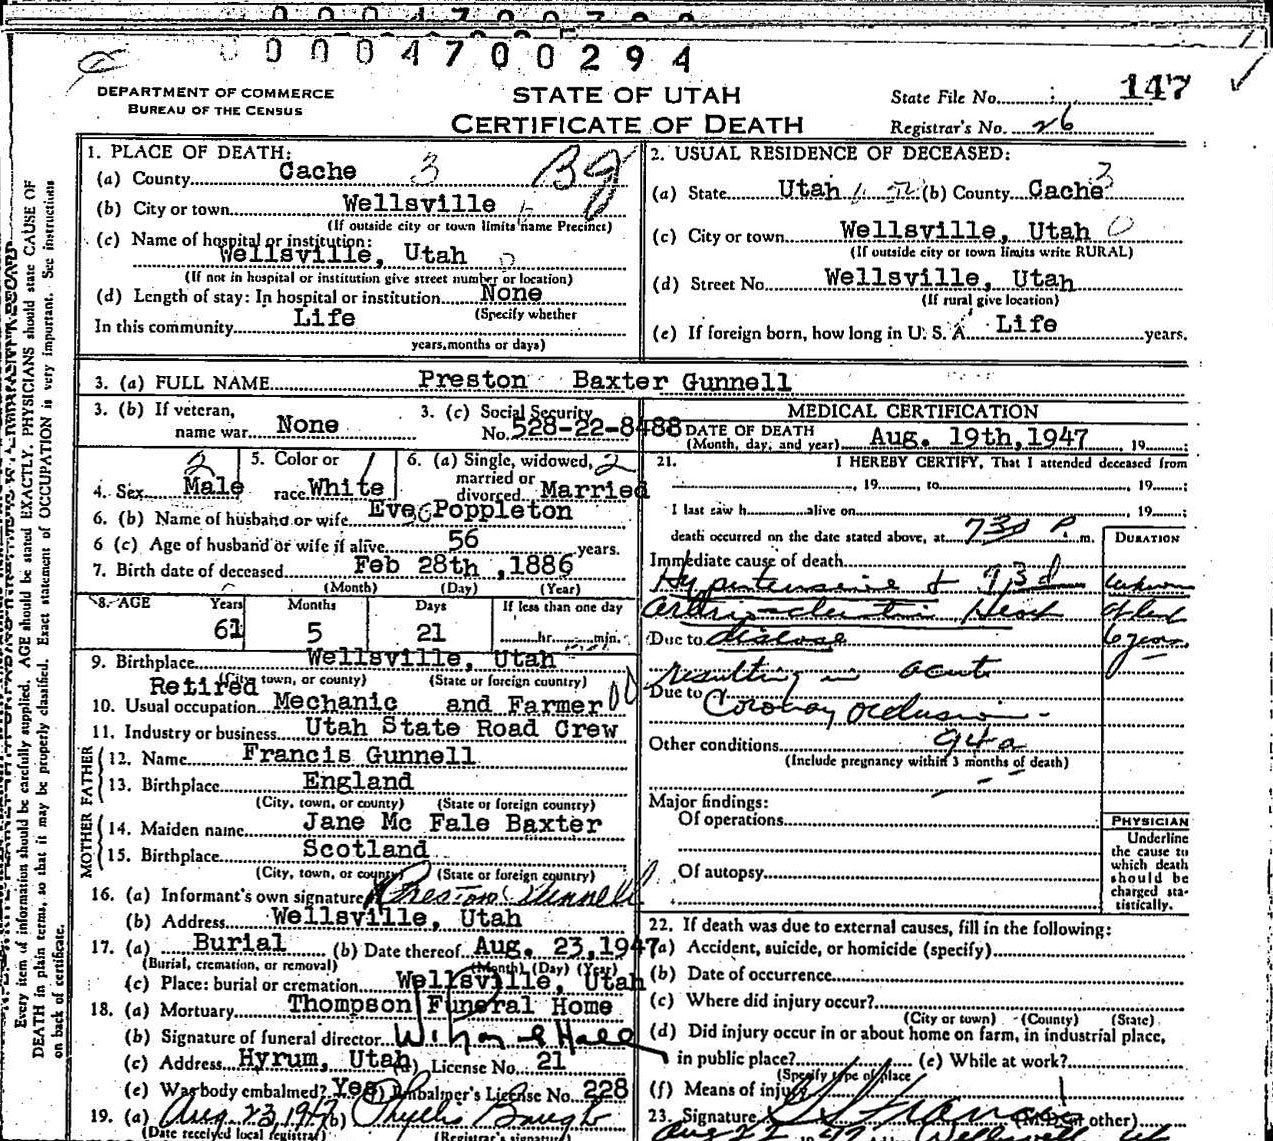 0 0 0 0 4 7 0 0 2 9 4
DEPARTMENT OF COMMERCE
BUREAU OF THE CENSUS
STATE OF UTAH
CERTIFICATE OF DEATH
State File No. 147
Registrar's No. 26
1. PLACE OF DEATH:
(a) County Cache 3
(b) City or town Wellsville
(If outside city or town limits name Precinct)
(c) Name of hospital or institution:
Wellsville, Utah 0
(If not in hospital or institution give street number or location)
(d) Length of stay: In hospital or institution None
(Specify whether
In this community Life
years, months or days)
2. USUAL RESIDENCE OF DECEASED:
(a) State Utah (b) County Cache 3
(c) City or town Wellsville, Utah 0
(If outside city or town limits write RURAL)
(d) Street No. Wellsville, Utah
(If rural give location)
(e) If foreign born, how long in U. S. A. Life years.
3. (a) FULL NAME Preston Baxter Gunnell
3. (b) If veteran, name war None
3. (c) Social Security No. 528-22-8488
4. Sex Male 2
5. Color or race White 1
6. (a) Single, widowed, married or divorced Married 2
6. (b) Name of husband or wife Eve Poppleton 56
6 (c) Age of husband or wife if alive 56 years.
7. Birth date of deceased Feb 28th, 1886
(Month) (Day) (Year)
8. AGE Years Months Days If less than one day
61 5 21 hr. min.
9. Birthplace Wellsville, Utah
(City, town, or county) (State or foreign country)
Retired
10. Usual occupation Mechanic and Farmer 00
11. Industry or business Utah State Road Crew
FATHER
12. Name Francis Gunnell
13. Birthplace England
(City, town, or county) (State or foreign country)
MOTHER
14. Maiden name Jane Mc Fale Baxter
15. Birthplace Scotland
(City, town, or county) (State or foreign country)
16. (a) Informant's own signature Preston Gunnell
(b) Address Wellsville, Utah
17. (a) Burial (b) Date thereof Aug. 23, 1947
(Burial, cremation, or removal) (Month) (Day) (Year)
(c) Place: burial or cremation Wellsville, Utah
18. (a) Mortuary Thompson Funeral Home
(b) Signature of funeral director
(c) Address Hyrum, Utah License No. 21
(e) Was body embalmed? Yes Embalmer's License No. 228
19. (a) Aug 23, 1947 (b) Phyllis Baugh
(Date received local registrar) (Registrar's signature)
MEDICAL CERTIFICATION
DATE OF DEATH
(Month, day, and year) Aug. 19th, 1947 19 ;
21. I HEREBY CERTIFY, That I attended deceased from
, 19 , to , 19 ;
I last saw h alive on , 19 ;
death occurred on the date stated above, at 730 P. m.
DURATION
Immediate cause of death
Hypertensive & 93d unknown
arteriosclerotic Heart
Due to disease 6 years
resulting in acute
Due to Coronary occlusion
Other conditions 94a
(Include pregnancy within 3 months of death)
Major findings:
Of operations
Of autopsy
PHYSICIAN
Underline
the cause to
which death
should be
charged sta-
tistically.
22. If death was due to external causes, fill in the following:
(a) Accident, suicide, or homicide (specify)
(b) Date of occurrence
(c) Where did injury occur?
(City or town) (County) (State)
(d) Did injury occur in or about home on farm, in industrial place,
in public place? (e) While at work?
(Specify type of place
(f) Means of injury
23. Signature (M.D. or other)
Every item of information should be carefully supplied. AGE should be stated EXACTLY. PHYSICIANS should state CAUSE OF
DEATH in plain terms, so that it may be properly classified. Exact statement of OCCUPATION is very important. See instructions
on back of certificate.